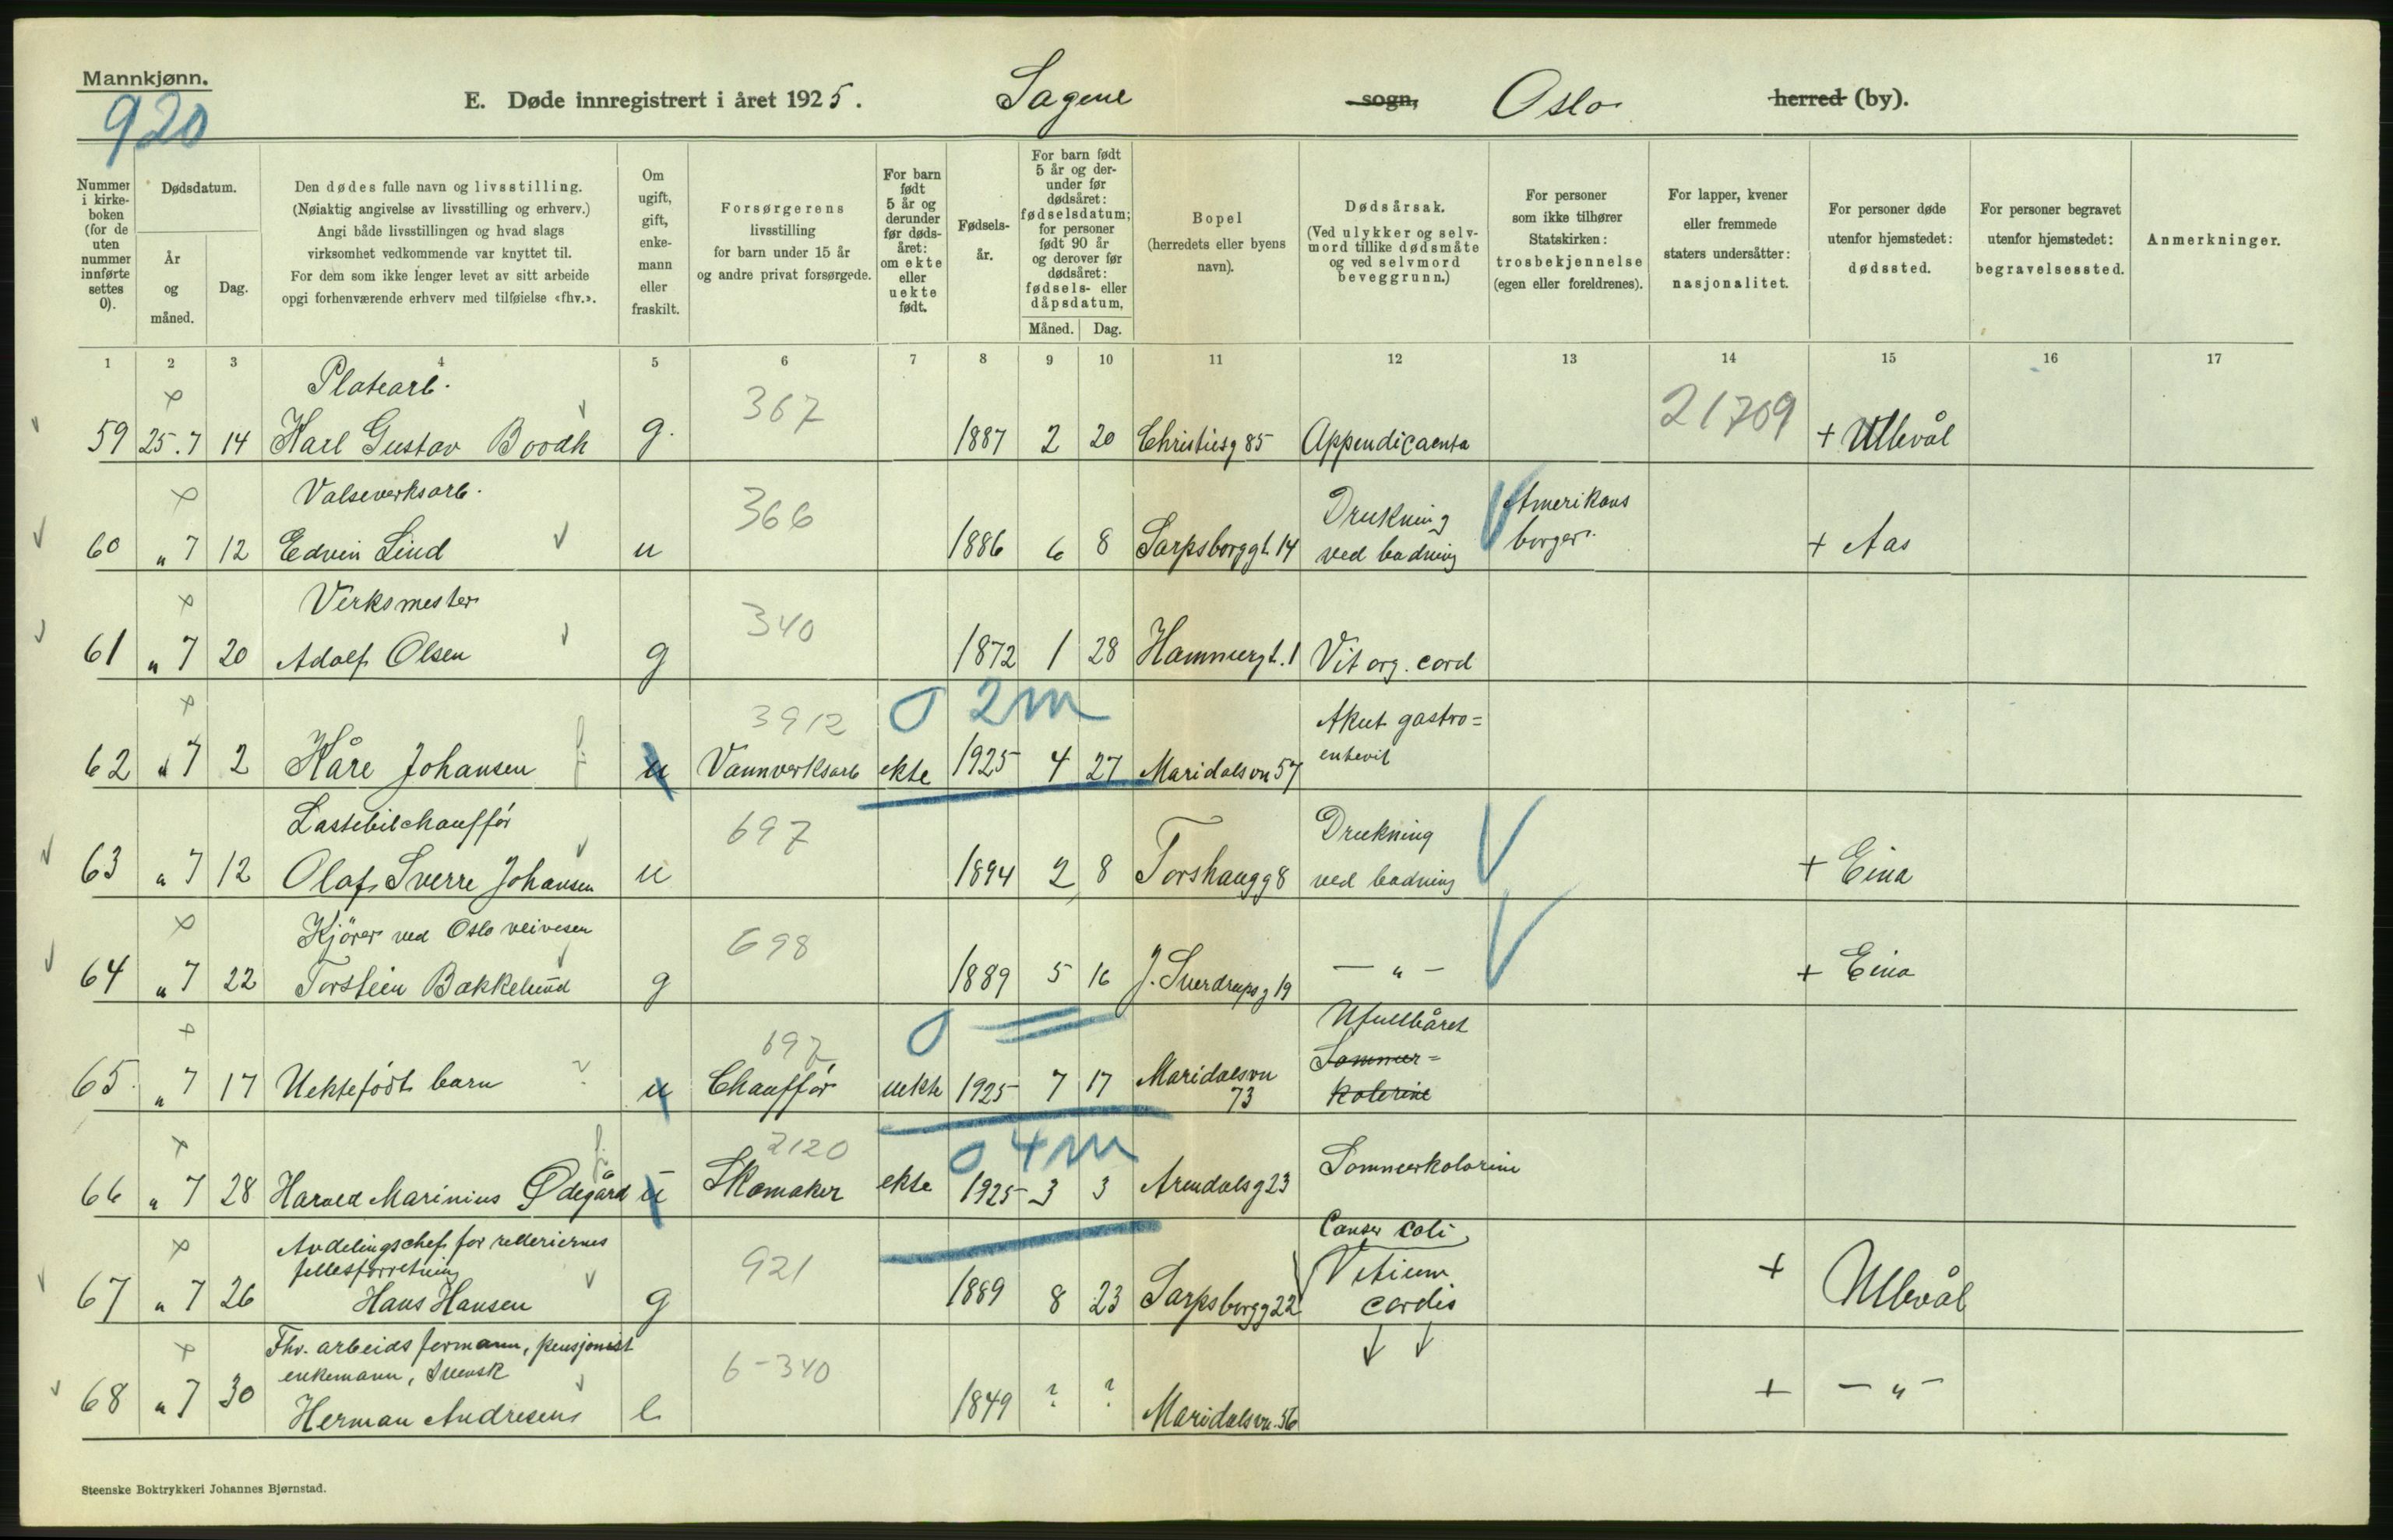 Mannkjønn.
920
E. Døde innregistrert i året 1925.
Sagene
sogn,
Oslo
herred (by).
Nummer i kirke-boken (for de uten nummer innførte settes 0).
Dødsdatum.
År og måned.
Dag.
Den dødes fulle navn og livsstilling.
(Nøiaktig angivelse av livsstilling og erhverv.)
Angi både livsstillingen og hvad slags
virksomhet vedkommende var knyttet til.
For dem som ikke lenger levet av sitt arbeide
opgi forhenværende erhverv med tilføielse «fhv.».
Om ugift, gift, enke-mann eller fraskilt.
Forsørgerens
livsstilling
for barn under 15 år
og andre privat forsørgede.
For barn født 5 år og derunder før døds-året: om ekte eller uekte født.
Fødsels-år.
For barn født 5 år og der-under før dødsåret: fødselsdatum; for personer født 90 år og derover før dødsåret: fødsels- eller dåpsdatum.
Måned.
Dag.
Bopel
(herredets eller byens
navn).
Dødsårsak.
(Ved ulykker og selv-
mord tillike dødsmåte
og ved selvmord
beveggrunn.)
For personer
som ikke tilhører
Statskirken:
trosbekjennelse
(egen eller foreldrenes).
For lapper, kvener
eller fremmede
staters undersåtter:
nasjonalitet.
For personer døde
utenfor hjemstedet:
dødssted.
For personer begravet
utenfor hjemstedet:
begravelsessted.
Anmerkninger.
1 2 3 4 5 6 7 8 9 10 11 12 13 14 15 16 17
Platearb.
367
21709
59 25.7 14 Karl Gustav Boodh g. 1887 2 20 Christiesg 85 Appendicaenta + Ullevål
Valseverksarb.
366
Drukning
Amerikans
60 " 7 12 Edvin Lind u 1886 6 8 Sarpsborggt. 14 ved badning borger. + Aas
Verksmester
340
61 " 7 20 Adolf Olsen g 1872 1 28 Hammergt. 1 Vit org. cord
3912
2m
Akut gastro=
62 " 7 2 Kåre Johansen u Vannverksarb ekte 1925 4 27 Maridalsvn 57 enterit
Lastebilchauffór
697
Drukning
63 " 7 12 Olaf Sverre Johansen u 1894 2 8 Torshaugg 8 ved badning + Eina
Kjörer ved Oslo veivesen
698
64 " 7 22 Torstein Bakkelund g 1889 5 16 J. Sverdrupsg 19 — " — + Eina
697
Ufullbåret
Sommer=
65. " 7 17 Uektefödt barn u Chauffór uekte 1925 7 17 Maridalsvn 73 kolerine
2120
4m
66 " 7 28 Harald Marinius Ødegård u Skomaker ekte 1925 3 3 Arendalsg 23 Sommerkolorine
Avdelingschef for rederiernes
fellesforretning
921
Canser coli
Vitium
67 " 7 26 Hans Hansen g 1889 8 23 Sarpsborgg 22 cordis + Ullevål
Fhv. arbeidsformann, pensjonist
enkemann, Svensk
6-340
68 " 7 30 Herman Andresen e 1849 ? ? Maridalsvn. 56 + — " —
Steenske Boktrykkeri Johannes Bjørnstad.